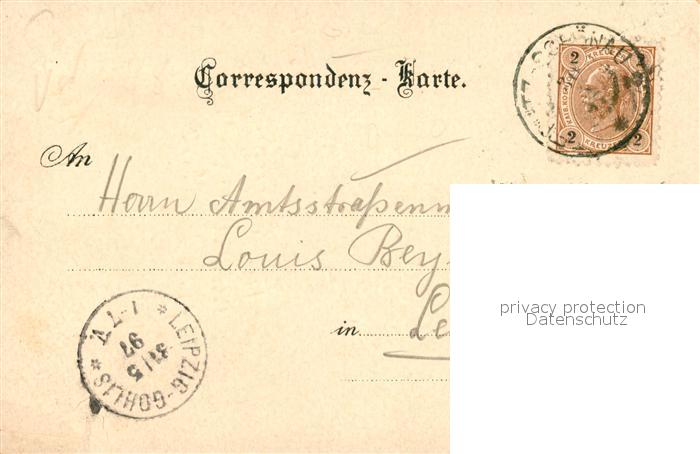 Correspondenz-Karte.
2
KREUZER
2 KREUZER 2
An
Herrn Amtsstraßenm
Louis Bey
privacy protection
Datenschutz
in Le
*LEIPZIG-GOHLIS*
1-7 V.
97